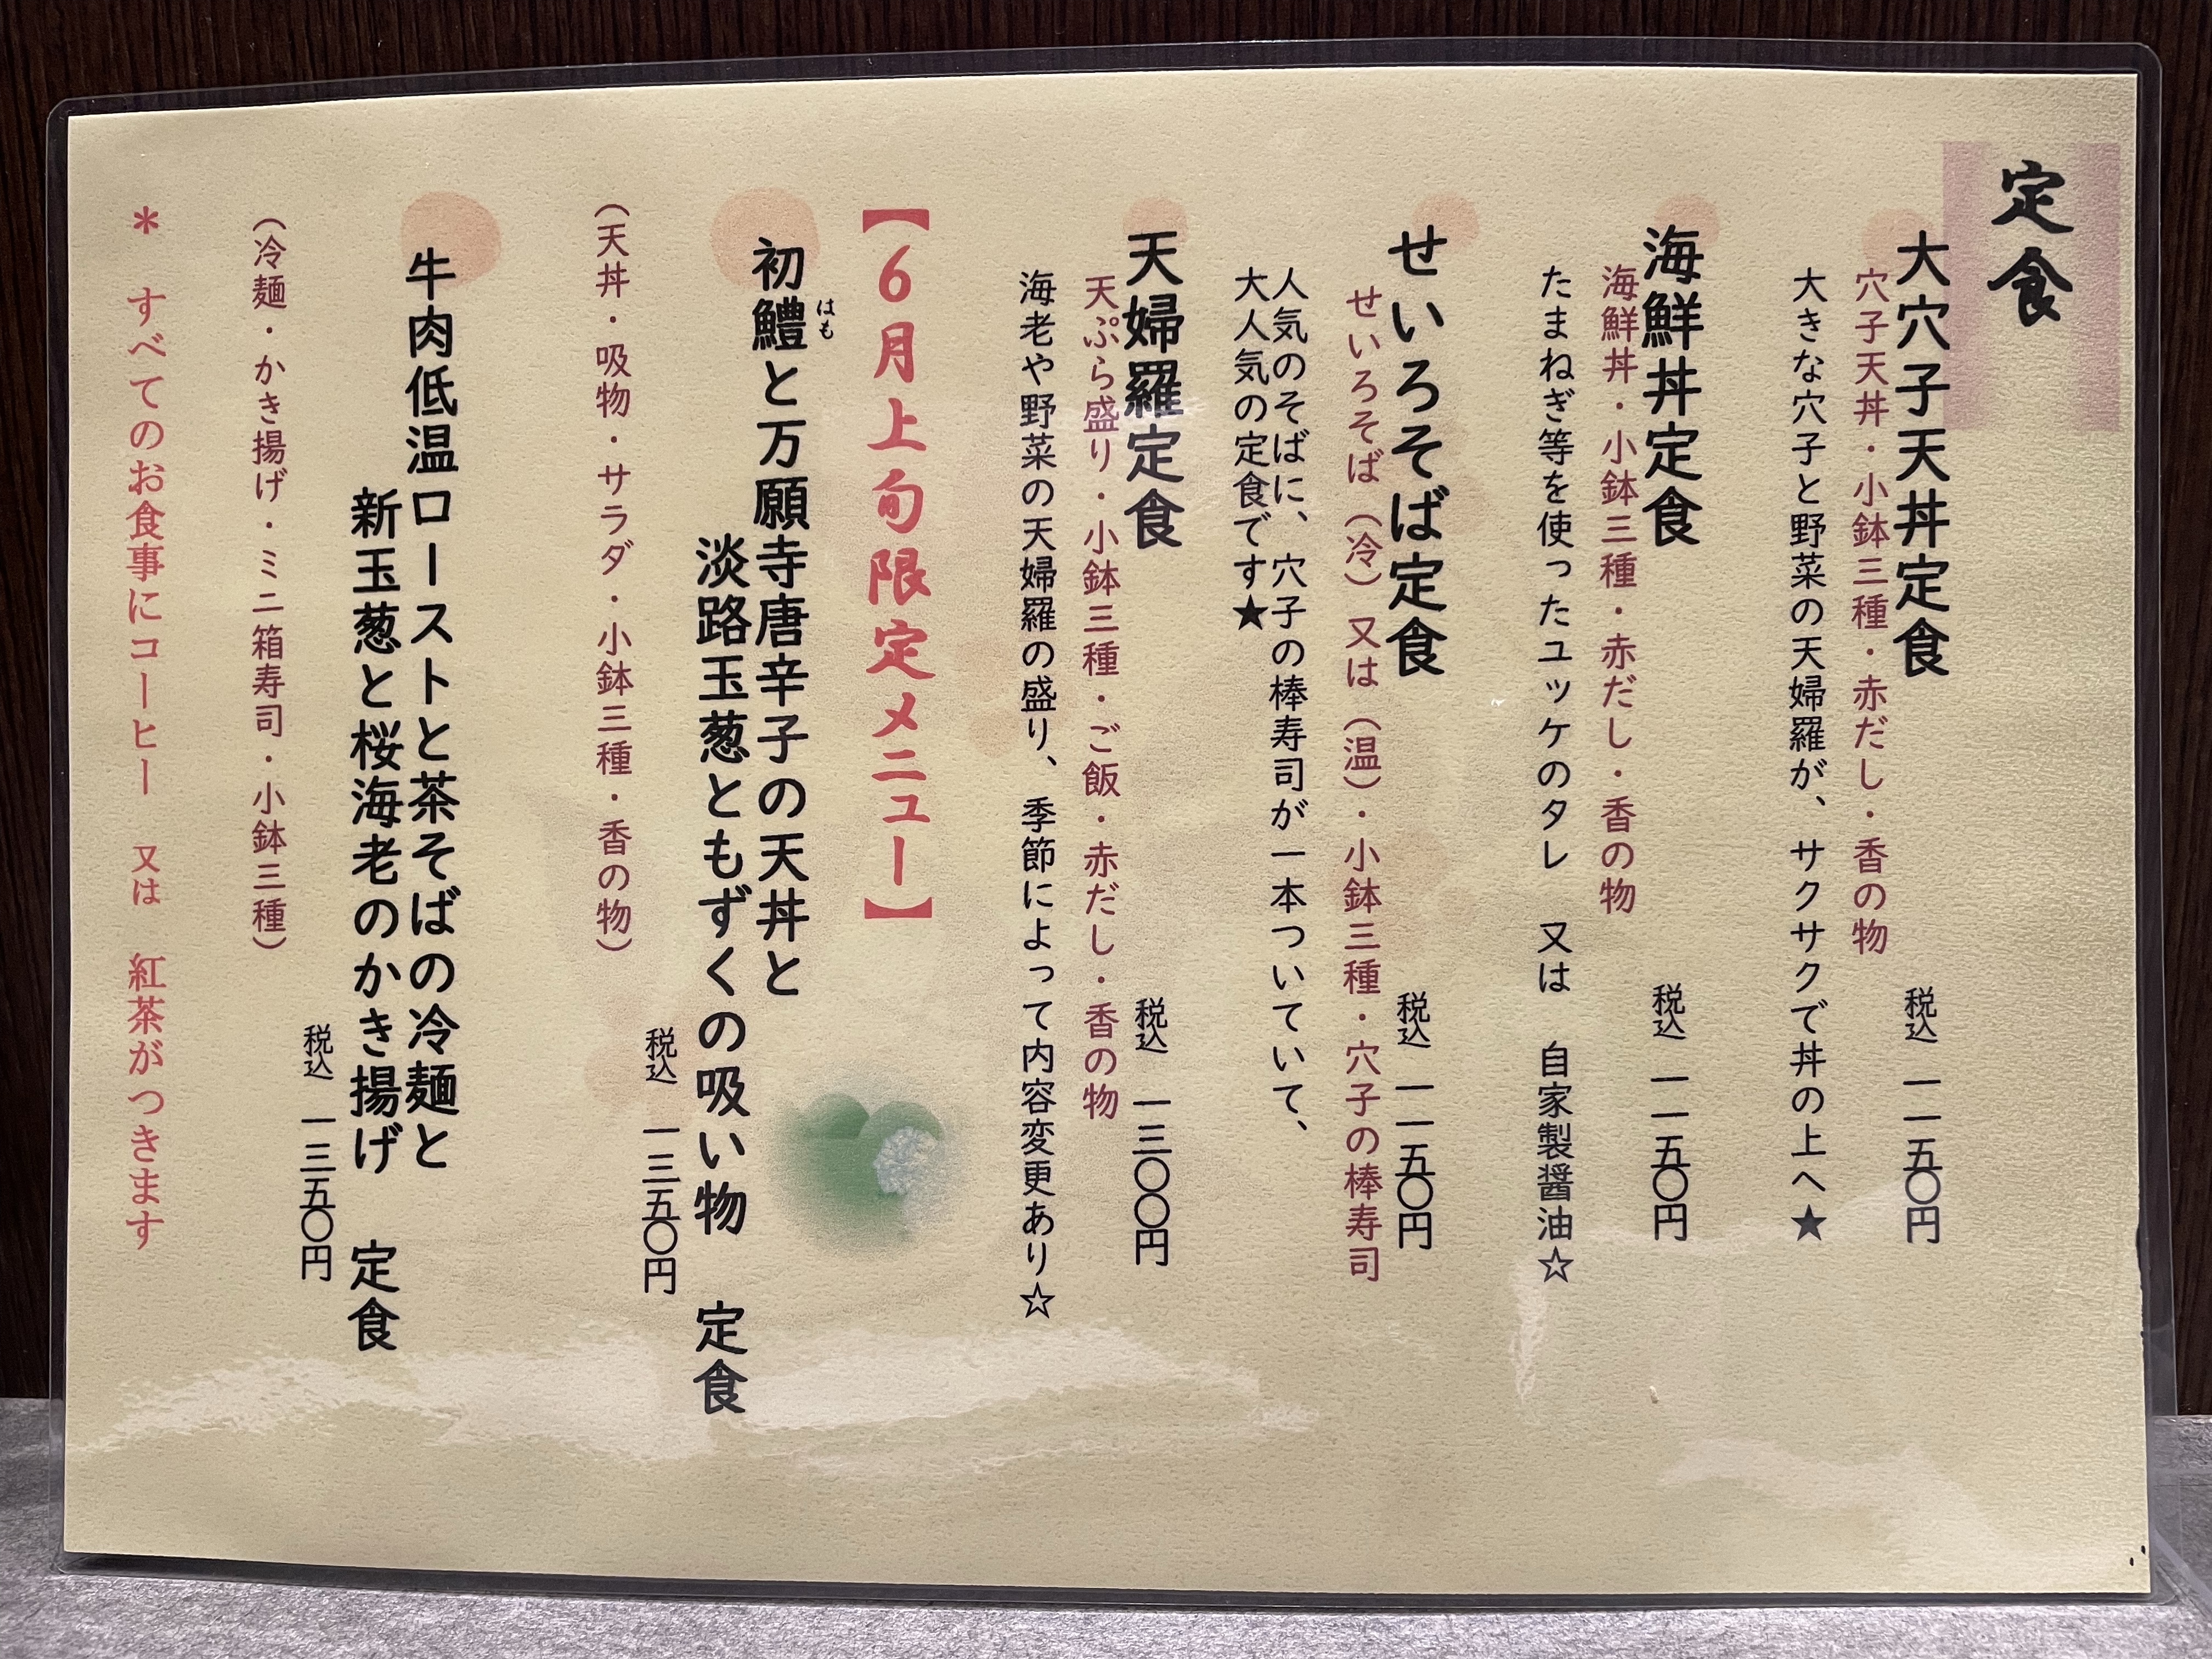 定食
大穴子天丼定食
税込 一一五〇円
穴子天丼・小鉢三種・赤だし・香の物
大きな穴子と野菜の天婦羅が、サクサクで丼の上へ★
海鮮丼定食
税込 一一五〇円
海鮮丼・小鉢三種・赤だし・香の物
たまねぎ等を使ったユッケのタレ 又は 自家製醤油☆
せいろそば定食
税込 一一五〇円
せいろそば（冷）又は（温）・小鉢三種・穴子の棒寿司
人気のそばに、穴子の棒寿司が一本ついていて、
大人気の定食です★
天婦羅定食
税込 一三〇〇円
天ぷら盛り・小鉢三種・ご飯・赤だし・香の物
海老や野菜の天婦羅の盛り、季節によって内容変更あり☆
【6月上旬限定メニュー】
初鱧と万願寺唐辛子の天丼と
はも
淡路玉葱ともずくの吸い物 定食
税込 一三五〇円
（天丼・吸物・サラダ・小鉢三種・香の物）
牛肉低温ローストと茶そばの冷麺と
新玉葱と桜海老のかき揚げ 定食
税込 一三五〇円
（冷麺・かき揚げ・ミニ箱寿司・小鉢三種）
＊ すべてのお食事にコーヒー 又は 紅茶がつきます